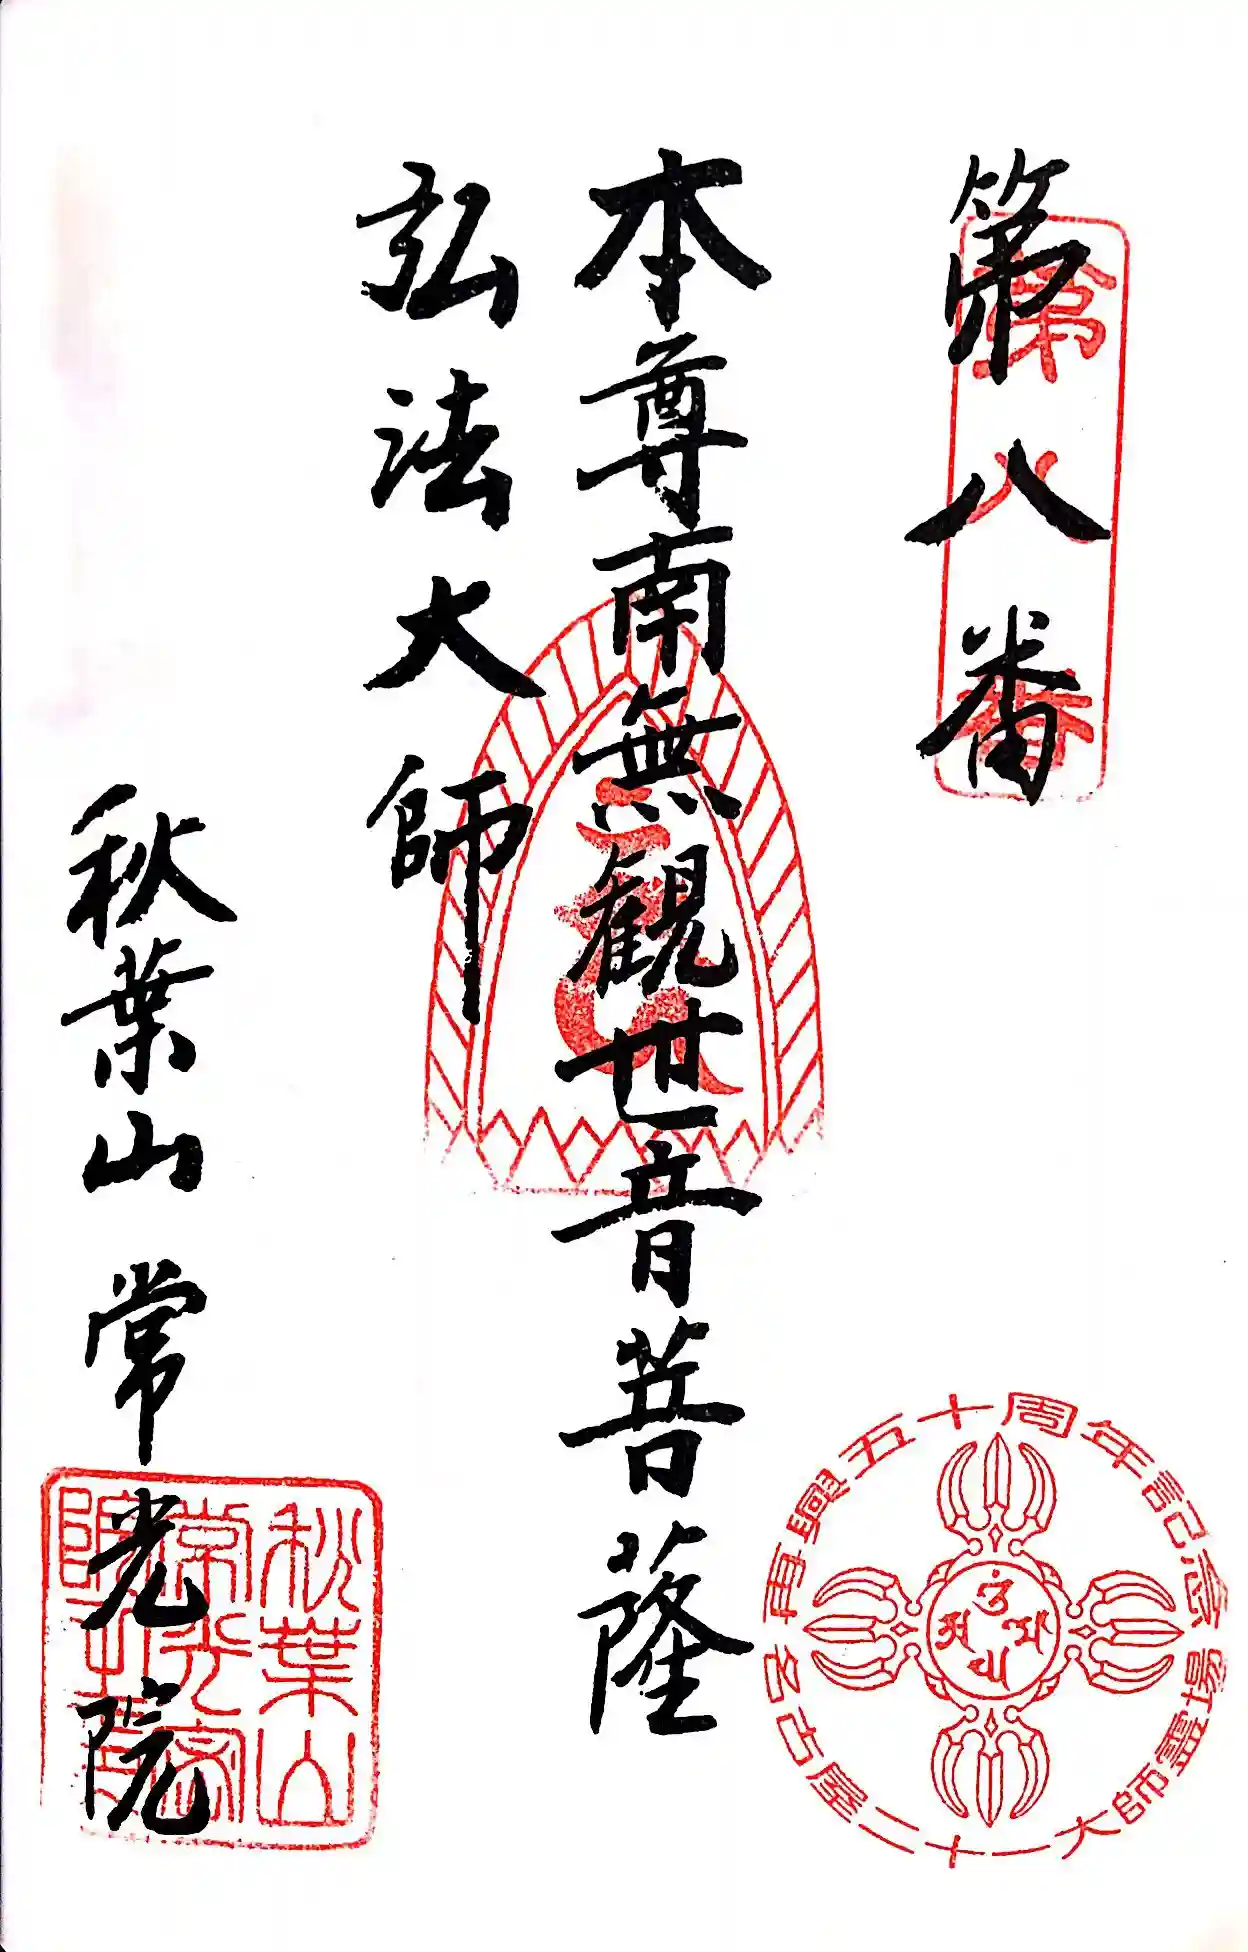 第八番
第八番
本尊南無観世音菩薩
弘法大師
秋葉山 常光院
名古屋二十一大師霊場
再興五十周年記念
秋葉山